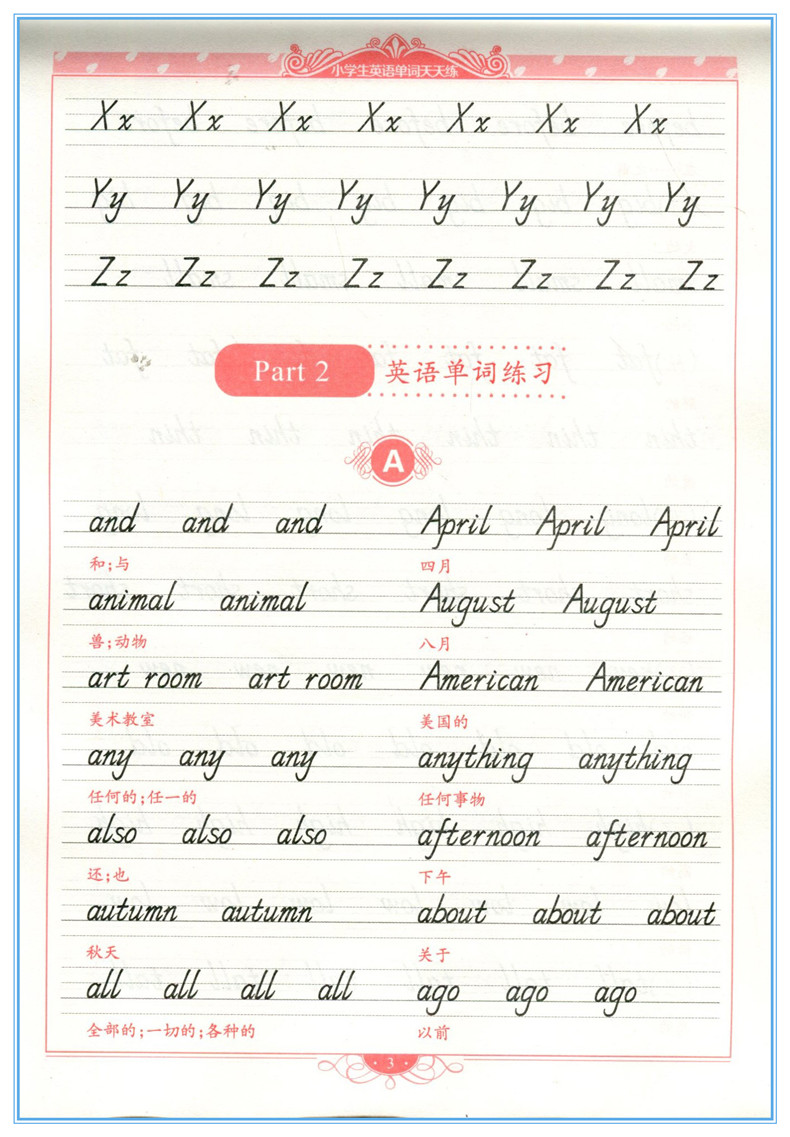 小学生英语单词天天练
Xx Xx Xx Xx Xx Xx Xx
Yy Yy Yy Yy Yy Yy Yy Yy
Zz Zz Zz Zz Zz Zz Zz Zz
Part 2 英语单词练习
A
and and and April April April
和;与 四月
animal animal August August
兽;动物 八月
art room art room American American
美术教室 美国的
any any any anything anything
任何的;任一的 任何事物
also also also afternoon afternoon
还;也 下午
autumn autumn about about about
秋天 关于
all all all all ago ago ago
全部的;一切的;各种的 以前
· 3 ·